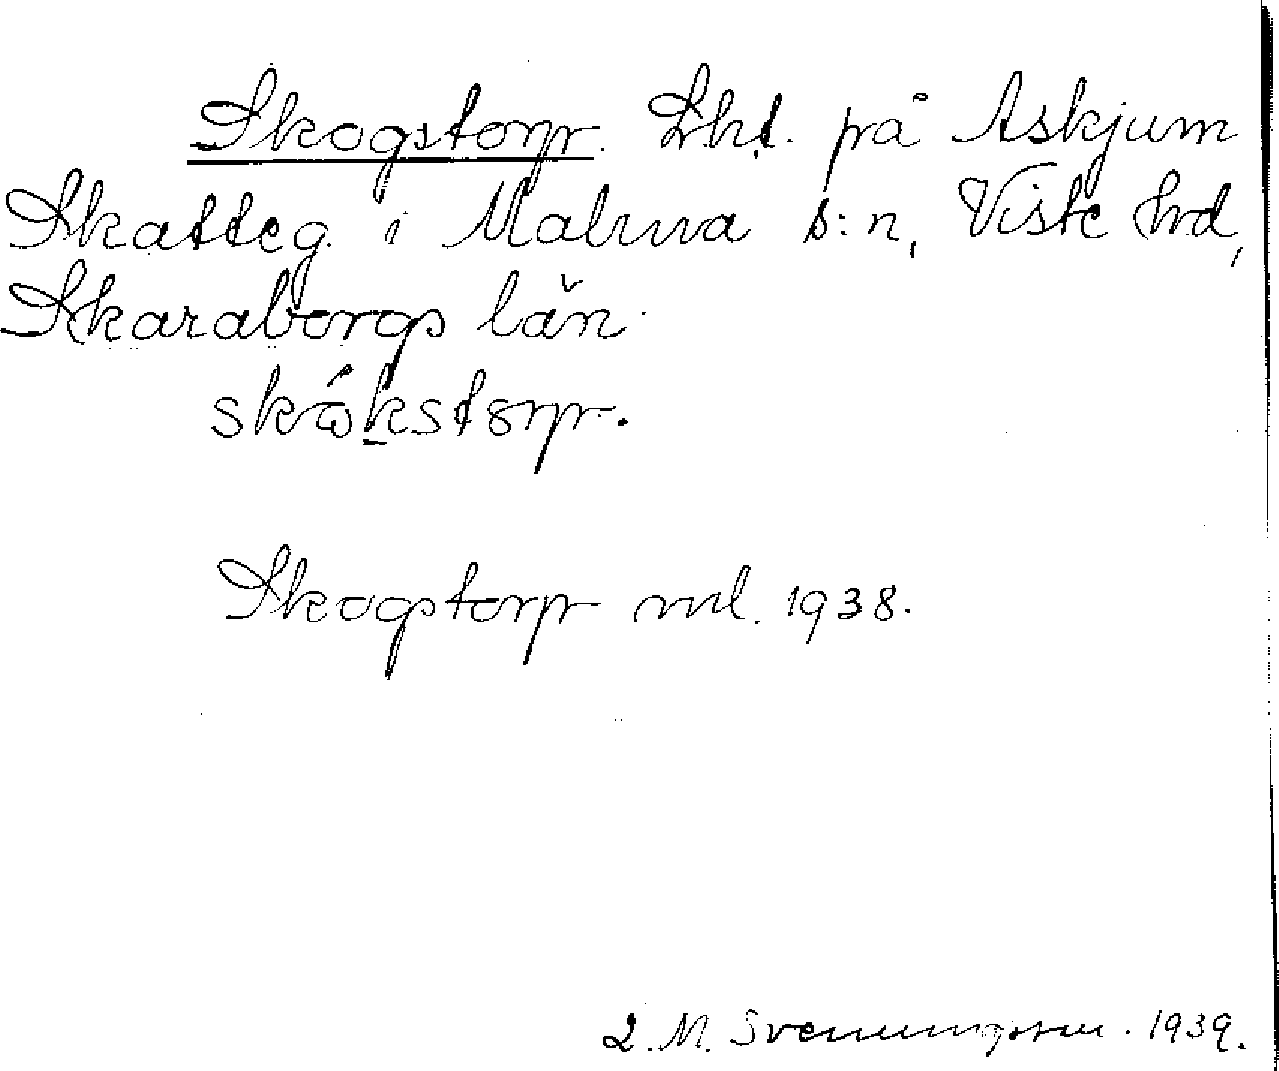 Skogstorp. Lht. på Askjum
Skatteg. i Malma s:n, Viste hd,
Skaraborgs län.
skókstorp.
Skogstorp ml. 1938.
L. M. Svenungsson. 1939.